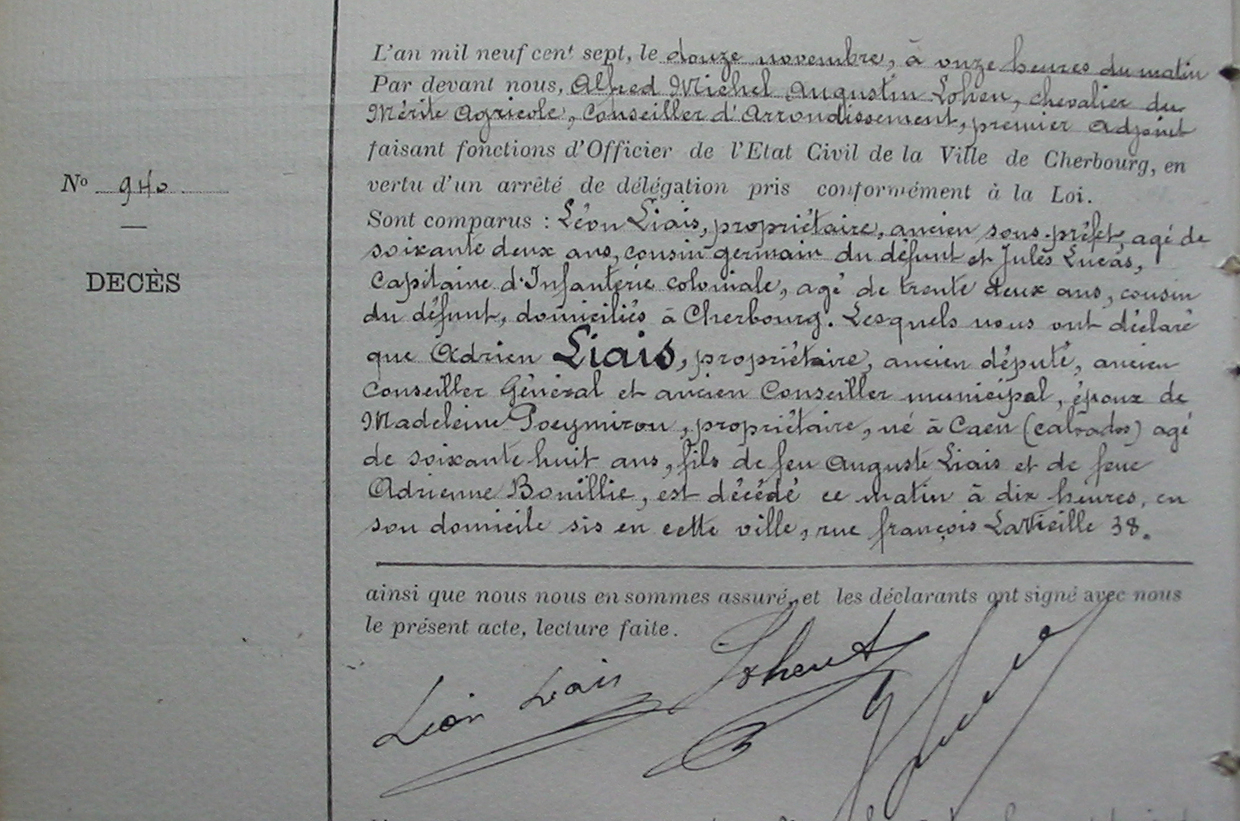 L'an mil neuf cent sept, le douze novembre, à onze heures du matin
Par devant nous, Alfred Michel Augustin Lohen, chevalier du
Mérite Agricole, Conseiller d'Arrondissement, premier Adjoint
faisant fonctions d'Officier de l'Etat Civil de la Ville de Cherbourg, en
vertu d'un arrêté de délégation pris conformément à la Loi.
Nº 940
DECÈS
Sont comparus : Léon Liais, propriétaire, ancien sous-préfet, agé de
soixante deux ans, cousin germain du défunt et Jules Lucas,
Capitaine d'Infanterie coloniale, agé de trente deux ans, cousin
du défunt, domiciliés à Cherbourg. Lesquels nous ont déclaré
que Adrien Liais, propriétaire, ancien député, ancien
Conseiller Général et ancien Conseiller municipal, époux de
Madeleine Poeymirou, propriétaire, né à Caen (calvados) agé
de soixante huit ans, fils de feu Auguste Liais et de feue
Adrienne Bouillie, est décédé ce matin à dix heures, en
son domicile sis en cette ville, rue françois Lavieille 38.
ainsi que nous nous en sommes assuré, et les déclarants ont signé avec nous
le présent acte, lecture faite.
Léon Liais